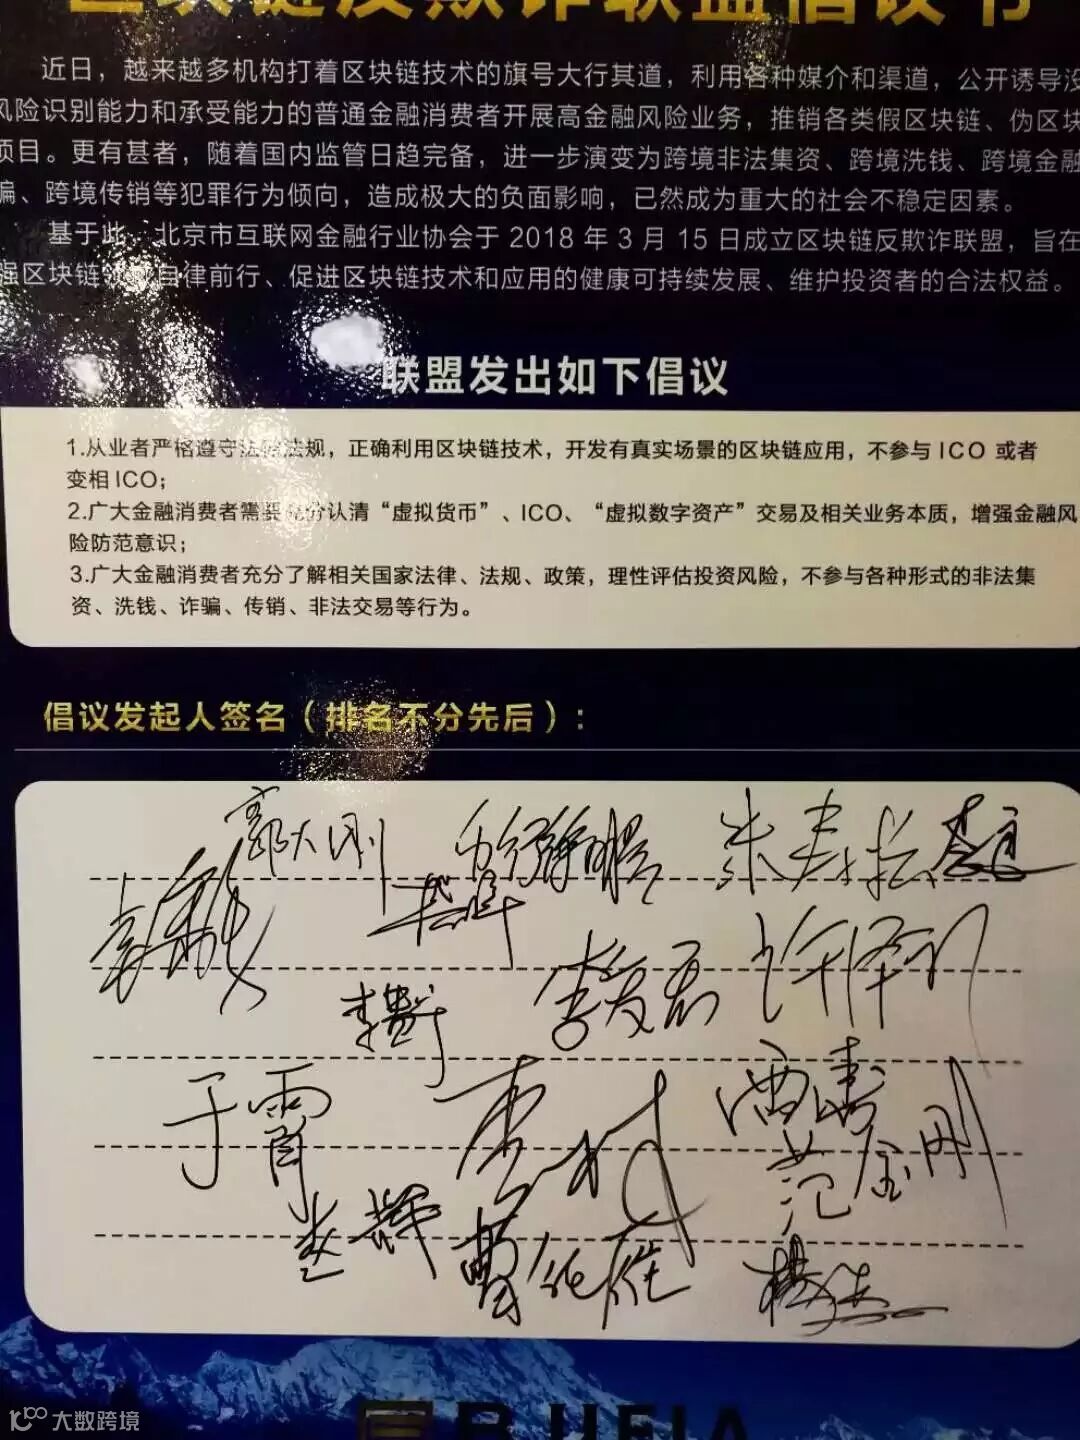 区块链反欺诈联盟倡议书
近日，越来越多机构打着区块链技术的旗号大行其道，利用各种媒介和渠道，公开诱导没
风险识别能力和承受能力的普通金融消费者开展高金融风险业务，推销各类假区块链、伪区块
项目。更有甚者，随着国内监管日趋完备，进一步演变为跨境非法集资、跨境洗钱、跨境金融
骗、跨境传销等犯罪行为倾向，造成极大的负面影响，已然成为重大的社会不稳定因素。
基于此，北京市互联网金融行业协会于 2018 年 3 月 15 日成立区块链反欺诈联盟，旨在
强区块链 自律前行、促进区块链技术和应用的健康可持续发展、维护投资者的合法权益。
联盟发出如下倡议
1.从业者严格遵守法律法规，正确利用区块链技术，开发有真实场景的区块链应用，不参与 ICO 或者
变相ICO；
2.广大金融消费者需要充分认清“虚拟货币”、ICO、“虚拟数字资产”交易及相关业务本质，增强金融风
险防范意识；
3.广大金融消费者充分了解相关国家法律、法规、政策，理性评估投资风险，不参与各种形式的非法集
资、洗钱、诈骗、传销、非法交易等行为。
倡议发起人签名（排名不分先后）：
郭大刚
于霄
范金刚
BJIFIA
大数跨境